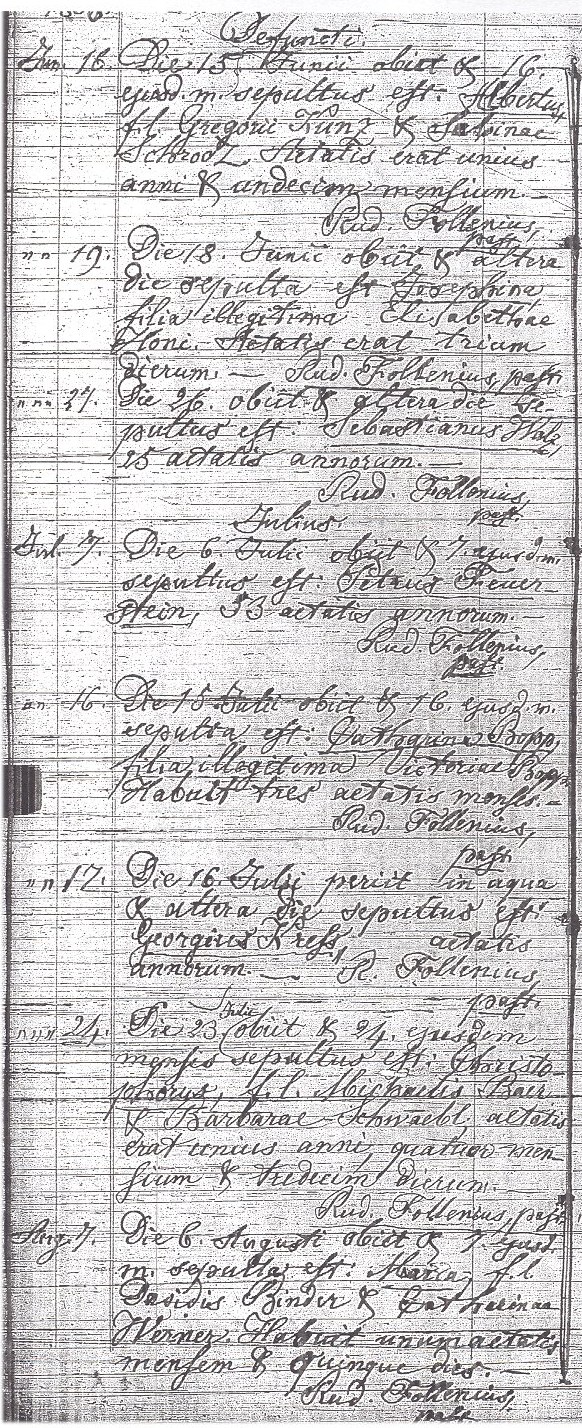 Defuncti.
Jun. 16. Die 15. Junii obiit & 16.
ejusd. m. sepultus est: Albertus,
f.l. Gregorii Kunz & Sabinae
Schrodt. Aetatis erat unius
anni & undecim mensium. —
Rud. Follenius,
past.
" " 19. Die 18. Junii obiit & altera
die sepulta est Josephina,
filia illegitima Elisabethae
Aetatis erat trium
dierum. — Rud. Follenius, past.
" " " 27. Die 26. obiit & altera die se-
pultus est: Sebastianus
25 aetatis annorum. —
Rud. Follenius,
past.
Julius.
Jul. 7. Die 6. Julii obiit & 7. ejusd. m.
sepultus est: Petrus Feuer-
stein, 53 aetatis annorum. —
Rud. Follenius,
past.
" " 16. Die 15. Julii obiit & 16. ejusd. m.
sepulta est: Catharina Bopp,
filia illegitima Victoriae Bopp.
Habuit tres aetatis menses. —
Rud. Follenius,
past.
" " 17. Die 16. Julii periit in aqua
& altera die sepultus est:
Georgius Kress, aetatis
annorum. — R. Follenius,
past.
" " " 24. Die 23. Julii obiit & 24. ejusdem
mensis sepultus est: Christo-
phorus, f.l. Michaelis Baer
& Barbarae Schwaebl, aetatis
erat unius anni, quatuor men-
sium & tredecim dierum. —
Rud. Follenius, past.
Aug. 7. Die 6. Augusti obiit & 7. ejusd.
m. sepulta est: Maria, f.l.
Davidis Binder & Catharinae
Werner. Habuit unum aetatis
mensem & quinque dies. —
Rud. Follenius,
past.